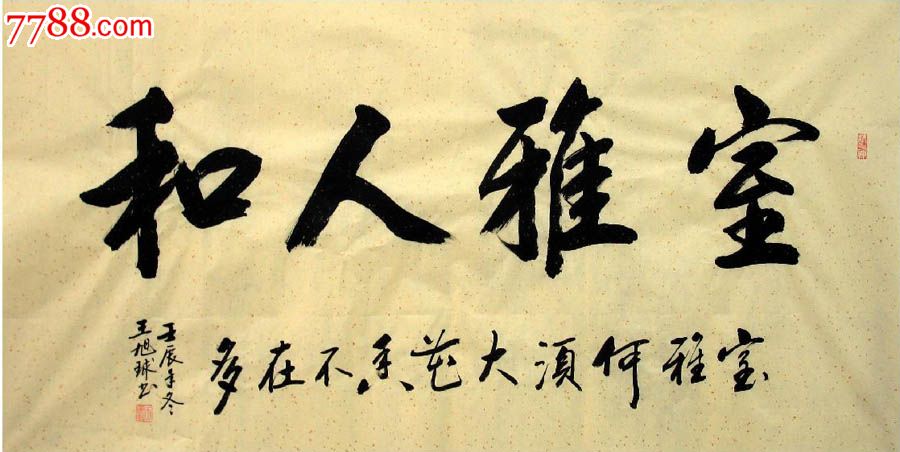 7788.com
室雅人和
室雅何须大花香不在多
壬辰年冬
王旭球书